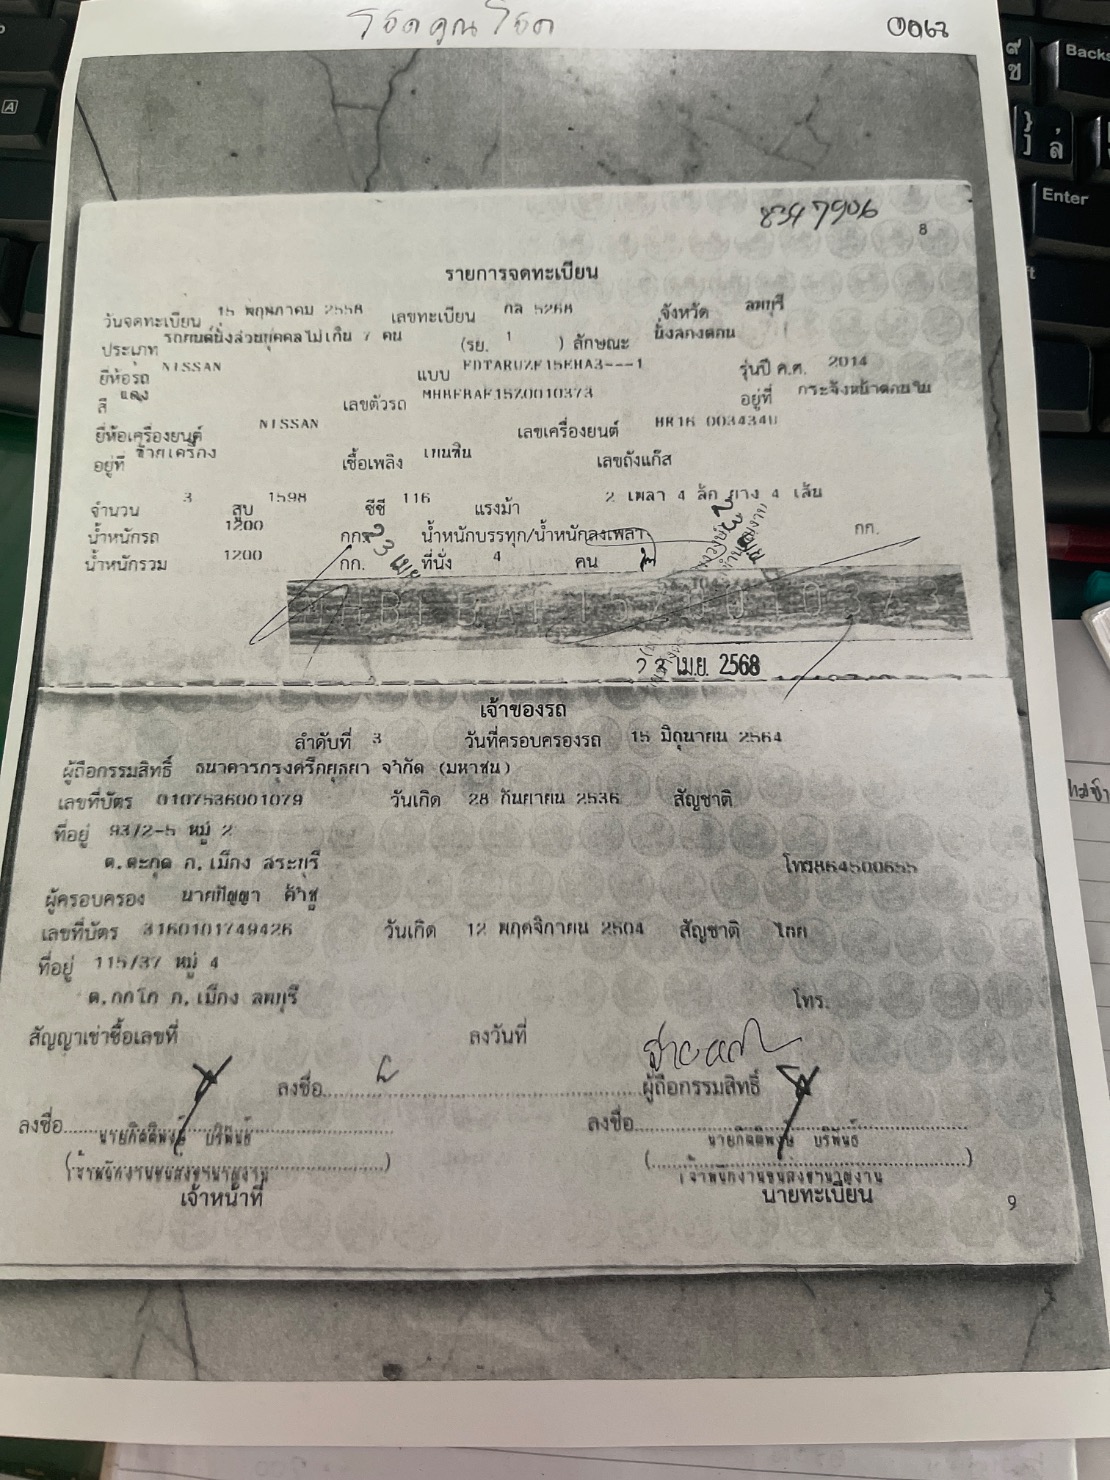 โชคคูณโชค
8347906
8
รายการจดทะเบียน
วันจดทะเบียน 15 พฤษภาคม 2558 เลขทะเบียน กล 5268 จังหวัด ลพบุรี
ประเภท รถยนต์นั่งส่วนบุคคลไม่เกิน 7 คน (รย. 1 ) ลักษณะ นั่งสองตอน
ยี่ห้อรถ NISSAN แบบ FDTARUZF15EHA3---1 รุ่นปี ค.ศ. 2014
สี แดง เลขตัวรถ MHBFBAF15Z0010373 อยู่ที่ กระจังหน้าตอนใน
ยี่ห้อเครื่องยนต์ NISSAN เลขเครื่องยนต์ HR16 003434U
อยู่ที่ ซ้ายเครื่อง เชื้อเพลิง เบนซิน เลขถังแก๊ส
จำนวน 3 สูบ 1598 ซีซี 116 แรงม้า 2 เพลา 4 ล้อ ยาง 4 เส้น
น้ำหนักรถ 1200 กก. น้ำหนักบรรทุก/น้ำหนักลงเพลา กก.
น้ำหนักรวม 1200 กก. ที่นั่ง 4 คน
23 เม.ย. 2568
เจ้าของรถ
ลำดับที่ 3 วันที่ครอบครองรถ 15 มิถุนายน 2564
ผู้ถือกรรมสิทธิ์ ธนาคารกรุงศรีอยุธยา จำกัด (มหาชน)
เลขที่บัตร 0107536001079 วันเกิด 28 กันยายน 2536 สัญชาติ
ที่อยู่ 93/2-5 หมู่ 2
ต.ตะกุด อ.เมือง สระบุรี โทร864500655
ผู้ครอบครอง นายปัญญา ค้าชู
เลขที่บัตร 3160101749426 วันเกิด 12 พฤศจิกายน 2504 สัญชาติ ไทย
ที่อยู่ 115/37 หมู่ 4
ต.กกโก อ.เมือง ลพบุรี โทร.
สัญญาเช่าซื้อเลขที่ ลงวันที่
ลงชื่อ ผู้ถือกรรมสิทธิ์
ลงชื่อ ลงชื่อ
นายกิตติพงษ์ บริพันธ์ นายกิตติพงษ์ บริพันธ์
(เจ้าพนักงานขนส่งชำนาญงาน) (เจ้าพนักงานขนส่งชำนาญงาน)
เจ้าหน้าที่ นายทะเบียน
9